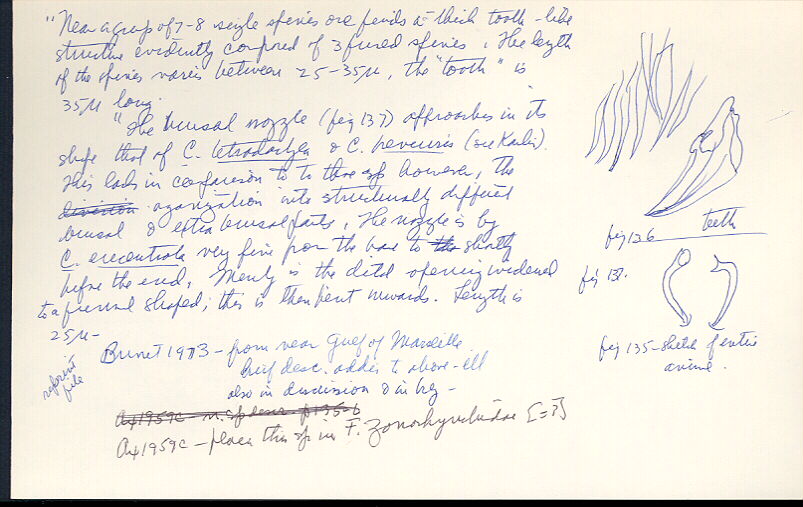 "Near a group of 7-8 single spines one finds a thick tooth-like
structure evidently composed of 3 fused spines. The length
of the spines varies between 25-35µ, the "tooth" is
35µ long.
"The bursal nozzle (fig 137) approaches in its
shape that of C. tetradactyla & C. (see Karling).
This lacks in comparison to to those spp however, the
division organization into structurally different
bursal & extra bursal parts. The nozzle is by
C. very fine from the base to the shortly
before the end. Merely is the distal opening widened
to a funnel shaped; this is then bent inwards. Length is
25µ-
Brunet 1973 - from near Gulf of Marseille.
brief desc. adds to above - ill
also in discussion & in key -
reprint
file
Ax 1959c - n. sp desc p 135-6
Ax 1959c - places this sp in F. [=?]
fig 126 teeth
fig 137.
fig 135 - sketch of entire
animal.